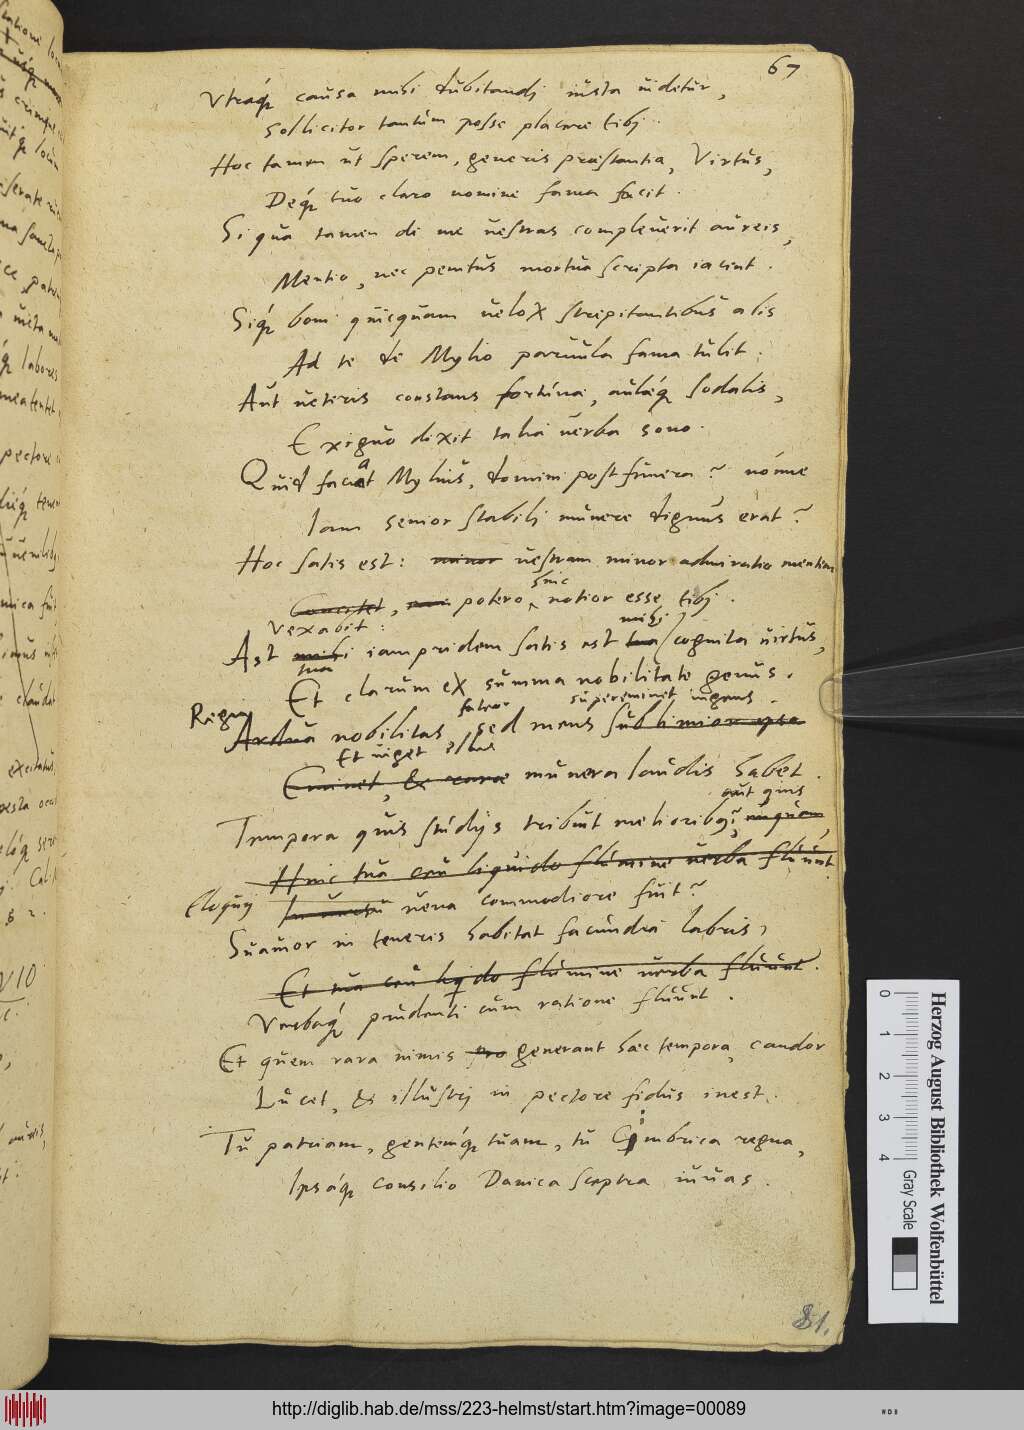 67
Vtraq́ causa mihi dubitandj iusta uidetur,
Sollicitor tantùm posse placere tibj.
Hoc tamen ut sperem, generis præstantia, Virtus,
Deq́ tuo claro nomine fama facit.
Si qua tamen de me uestras compleuerit aureis,
Mentio, nec penitus mortua scripta iacent.
Siq́ boni quicquam uelox strepitantibus alis
Ad te de Mylio paruula fama tulit:
Aut ueteris constans fortunæ, aulæq́ sodalis,
Exiguo dixit talia uerba sono.
Quid faciat Mylius, domini post funera? nónne
Iam senior stabilj munere dignus erat?
Hoc satis est: minor uestram minor admiratio mentem
hinc
Concitet, potero, notior esse tibj.
Vexabit:
mihj
Ast mihi iampridem satis est tua cognita uirtus,
tua
Et clarum ex summa nobilitate genus.
fateor supereminet ingens
Regia
Ardua nobilitas, sed mens sublimior ipsa
Et uiget
Eminet, & raræ munera laudis habet.
aut quis
Tempora quis studijs tribuit melioribus? nusquam,
Huic tua ceu liquido flumine uerba fluunt.
Eloquij
uena commodiore fuit?
Suauior in teneris habitat facundia labris,
Et tua ceu liquido flumine uerba fluunt.
Verbaq́ prudenti cum ratione fluunt.
Et quem rara nimis pro generant hæc tempora, candor
Lucet, & illustrj in pectore fidus inest.
Tu patriam, gentemq́ tuam, tu Cimbrica regna,
Ipsáq́ consilio Danica sceptra iuuas.
81.
0 1 2 3 4
Herzog August Bibliothek Wolfenbüttel
Gray Scale
http://diglib.hab.de/mss/223-helmst/start.htm?image=00089